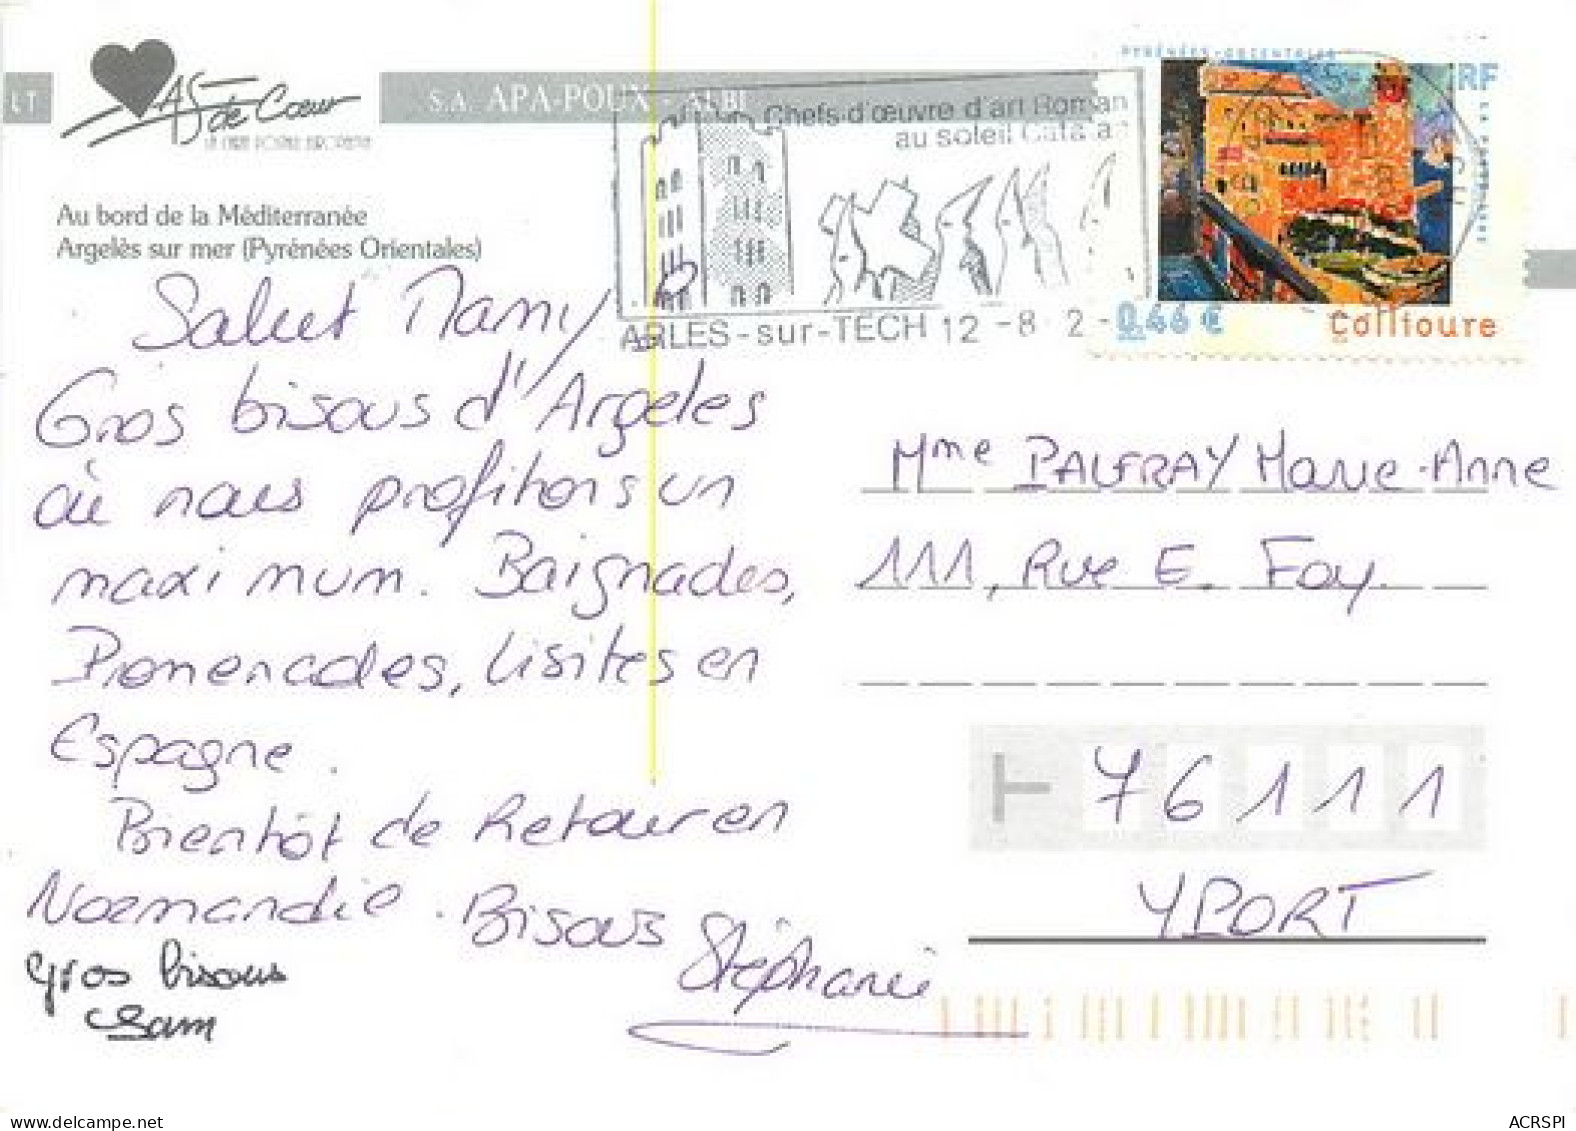 LT
AS de Cœur
LA CARTE POSTALE EUROPÉENNE
S.A. APA-POUX - ALBI
Au bord de la Méditerranée
Argelès sur mer (Pyrénées Orientales)
Chefs-d'œuvre d'art Roman
au soleil Catalan
ARLES-sur-TECH 12 -8 2-
PYRÉNÉES-ORIENTALES
RF
LA POSTE
0,46 €
Collioure
Salut Mamy
Gros bisous d'Argeles
où nous profitons un
maximum. Baignades,
Promenades, Visites en
Espagne.
Bientôt de Retour en
Normandie. Bisous
Stéphanie
gros bisous
Sam
Mme PALFRAY Marie-Anne
111, Rue E. Foy.
76111
YPORT
www.delcampe.net
ACRSPI